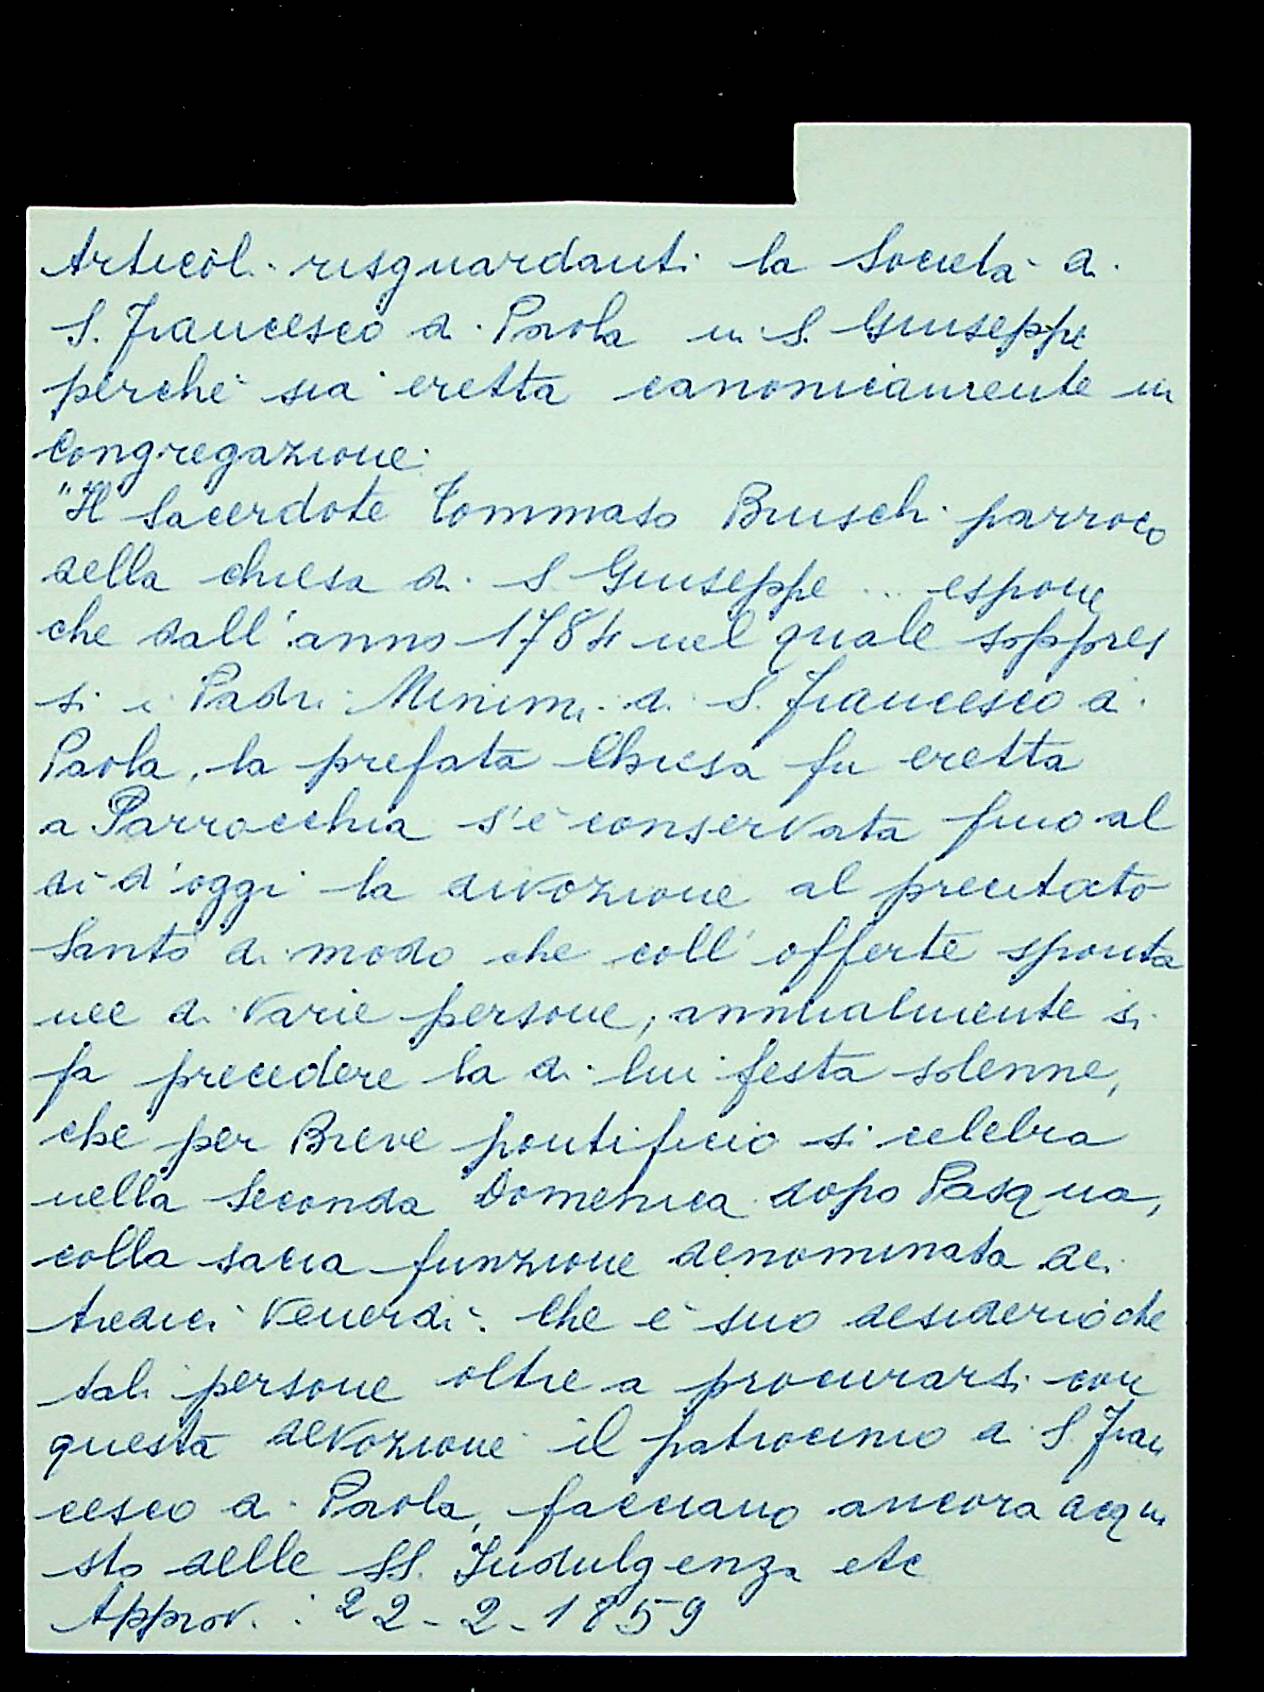 Articoli risguardanti la Società di
S. Francesco di Paola in S. Giuseppe
perchè sia eretta canonicamente in
Congregazione.
"Il Sacerdote Tommaso Bruschi parroco
della chiesa di S Giuseppe ... espone
che dall'anno 1784 nel quale soppres
si i Padri Minimi di S. Francesco di
Paola, la prefata Chiesa fu eretta
a Parrocchia s'è conservata fino al
dì d'oggi la divozione al precitato
Santo di modo che coll'offerte sponta
nee di varie persone, annualmente si
fa precedere la di lui festa solenne,
che per Breve pontificio si celebra
nella Seconda Domenica dopo Pasqua,
colla sacra funzione denominata dei
tredici Venerdì. Che è suo desiderio che
tali persone oltre a procurarsi con
questa devozione il patrocinio di S. Fran
cesco di Paola, facciano ancora acqui
sto delle SS. Indulgenza etc
Approv. : 22-2-1859